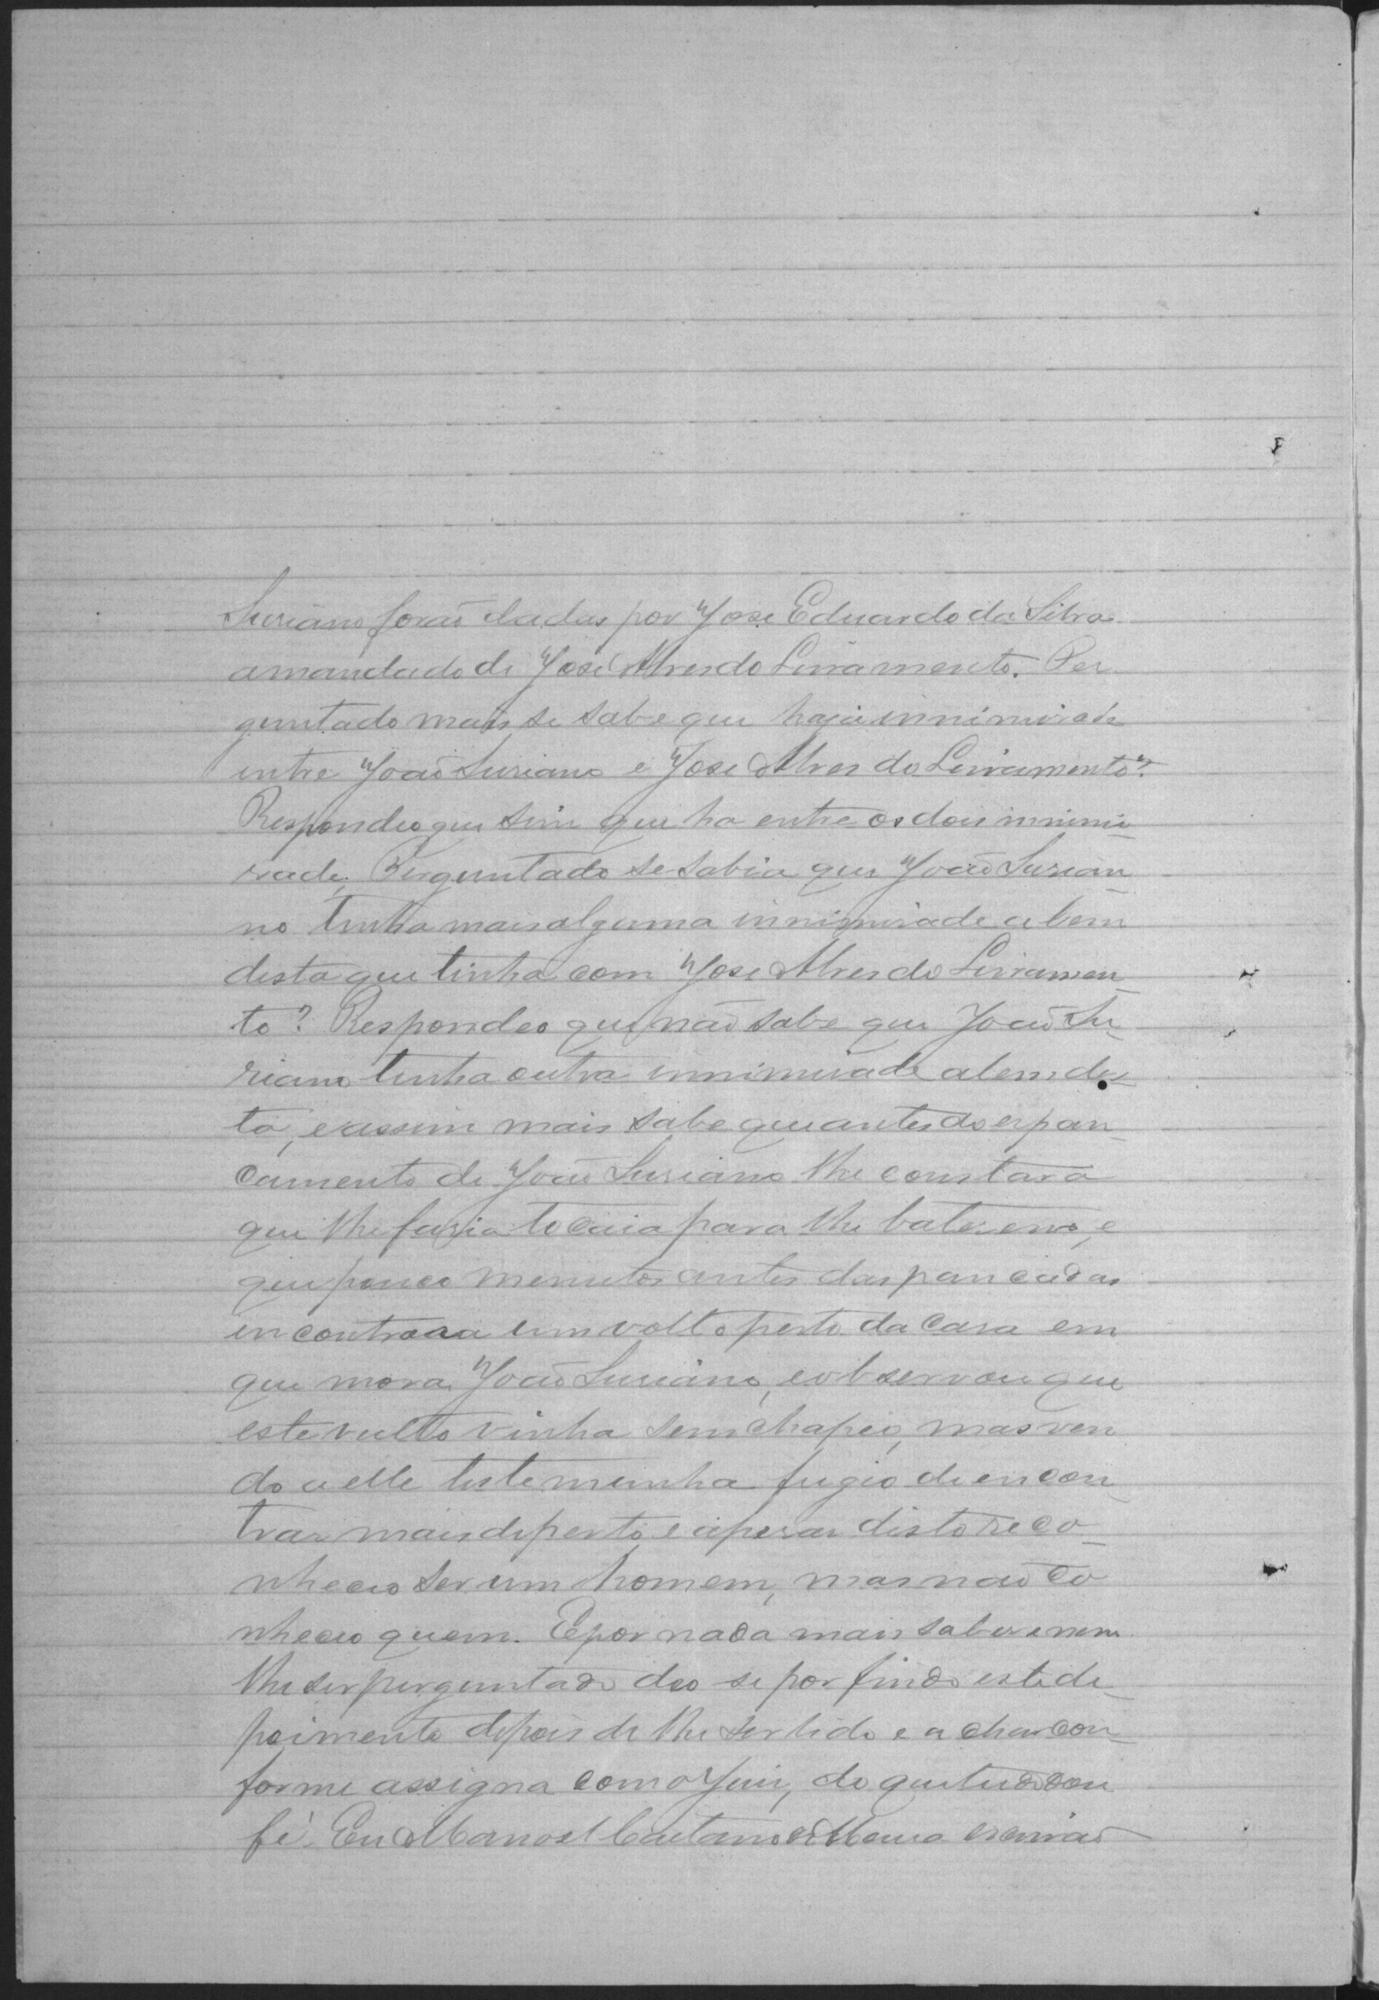 Suriano forão dadas por José Eduardo da Silva
amandado di José Alves do Livramento. Per
guntado mais se sabe que havia innimisade
entre João Suriano e José Alves do Livramento?
Respondeo que sim que ha entre os dois innimi
sade, Perguntado se sabia que João Surian
no tinha mais alguma innimisade alem
desta que tinha com José Alves do Livramen
to? Respondeo que não sabe que João Su
riano tinha outra innimisade alem des
ta, e assim mais sabe que antes do espan
camento de João Suriano lhe constara
que lhe fazia tocaia para lhe baterem, e
que pouco menutos antes das pancadas
encontrara um volto perto da casa em
que mora João Suriano, e observou que
este vulto vinha sem chapeo, mas ven
do a elle testemunha fugio de encon
trar mais de perto, e apesar disto reco
nheceo ser um homem, mas não co
nheceo quem. E por nada mais saber e nem
lhe ser perguntado deo se por findo este de
poimento depois de lhe ser lido e achar con
forme assigna com o Juiz, do que tudo dou
fé. Eu Manoel Caetano escrivão